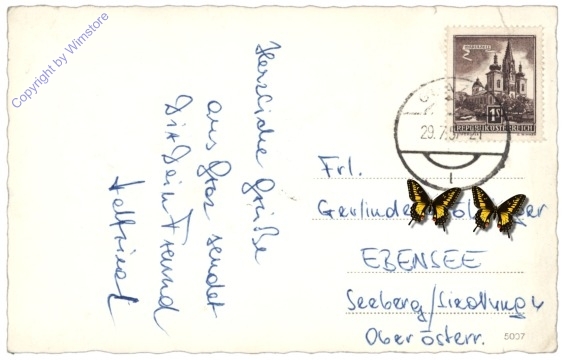 Copyright by Wimstore
Herzliche Grüße
aus Graz sendet
Dir Dein Freund
MARIAZELL
1S
REPUBLIK ÖSTERREICH
29.7.57-21
1
Frl.
EBENSEE
Seeberg/Siedlung 4
Ober österr.
5007